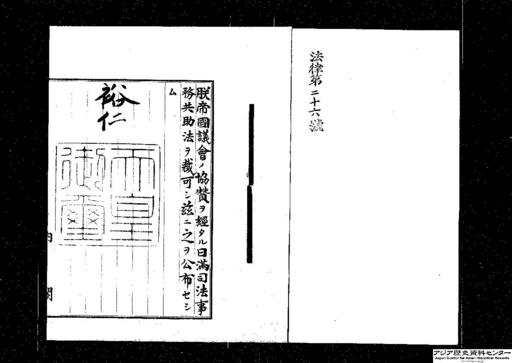 法律第二十六號
朕帝國議會ノ協贊ヲ經タル日滿司法事
務共助法ヲ裁可シ茲ニ之ヲ公布セシ
ム
裕仁
天皇
御璽
内
閣
アジア歴史資料センター
Japan Center for Asian Historical Records